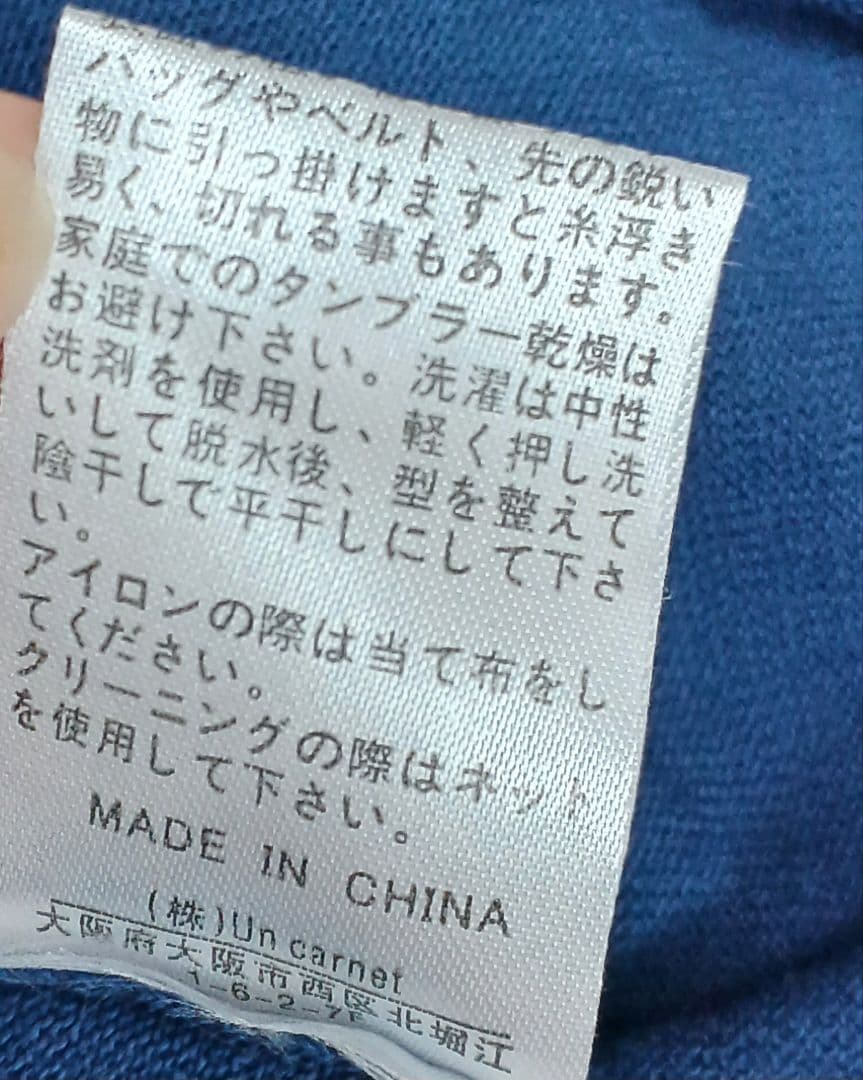 バッグやベルト、先の鋭い
物に引っ掛けますと糸浮き
易く、切れる事もあります。
家庭でのタンブラー乾燥は
お避け下さい。洗濯は中性
洗剤を使用し、軽く押し洗
いして脱水後、型を整えて
陰干しで平干しにして下さ
い。
アイロンの際は当て布をし
てください。
クリーニングの際はネット
を使用して下さい。
MADE IN CHINA
(株)Un carnet
大阪府大阪市西区北堀江
1-6-2-7F